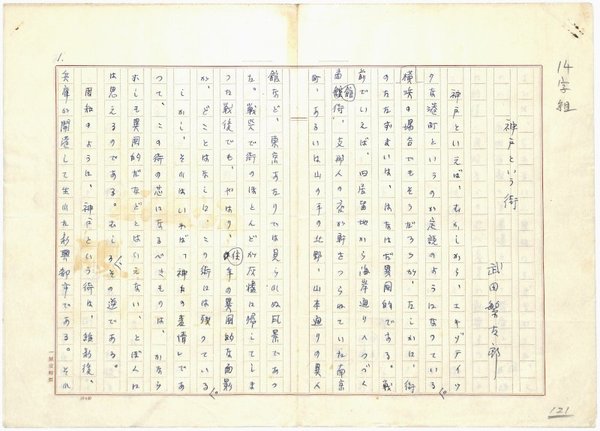 14字組
神戸という街
武田繁太郎
神戸といえば、むかしから、エキゾティッ
クな港町というのが定説のようになっている。
横浜の場合でもそうだろうが、たしかに、街
のたたずまいは、はなはだ異国的である。戦
前でいえば、旧居留地から海岸通りへつづく
館街、支那人の交が軒をつらねていた南京
町、あるいは山の手の北野、山本通りの異人
館など、東京あたりでは見られぬ風景であっ
た。戦災で街のほとんどが灰燼に帰してしま
った戦後でも、やはり、昔の異国的な面影
が、どことはなしに、この街には残っている。
しかし、そうはいえば「神戸の表情」であ
って、この街の芯になるべきものは、かなら
ずしも異国的だなどとはいえない、とぼくに
は思えるのである。むしろ、その逆である。
周知のように、神戸という街は、維新後、
兵庫が開港して生れた新興都市である。それ
1.
121